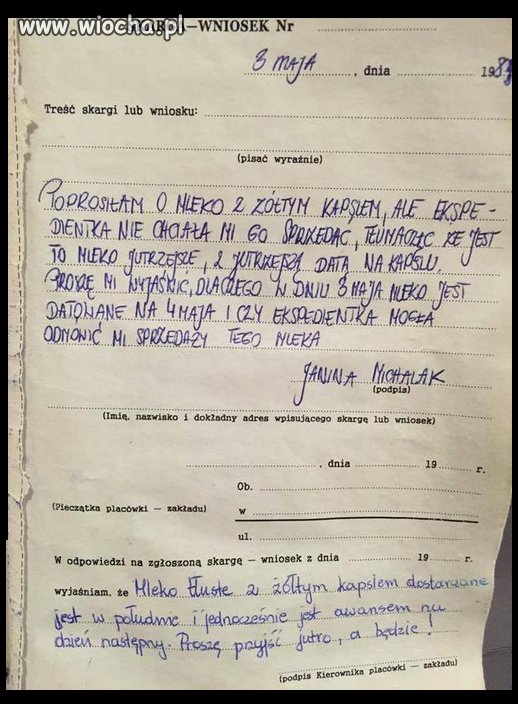 www.wiocha.pl
SKARGA—WNIOSEK Nr
3 MAJA , dnia 198
Treść skargi lub wniosku:
(pisać wyraźnie)
POPROSIŁAM O MLEKO Z ŻÓŁTYM KAPSLEM, ALE EKSPE-
DIENTKA NIE CHCIAŁA MI GO SPRZEDAĆ, TŁUMACZĄC ŻE JEST
TO MLEKO JUTRZEJSZE, Z JUTRZEJSZĄ DATĄ NA KAPSLU.
PROSZĘ MI WYJAŚNIĆ, DLACZEGO W DNIU 3 MAJA MLEKO JEST
DATOWANE NA 4 MAJA I CZY EKSPEDIENTKA MOGŁA
ODMÓWIĆ MI SPRZEDAŻY TEGO MLEKA
JANINA MICHALAK
(podpis)
(Imię, nazwisko i dokładny adres wpisującego skargę lub wniosek)
, dnia 19 r.
Ob.
(Pieczątka placówki — zakładu) w
ul.
W odpowiedzi na zgłoszoną skargę — wniosek z dnia 19 r.
wyjaśniam, że Mleko tłuste z żółtym kapslem dostarczane
jest w południe i jednocześnie jest awansem na
dzień następny. Proszę przyjść jutro, a będzie!
(podpis Kierownika placówki — zakładu)